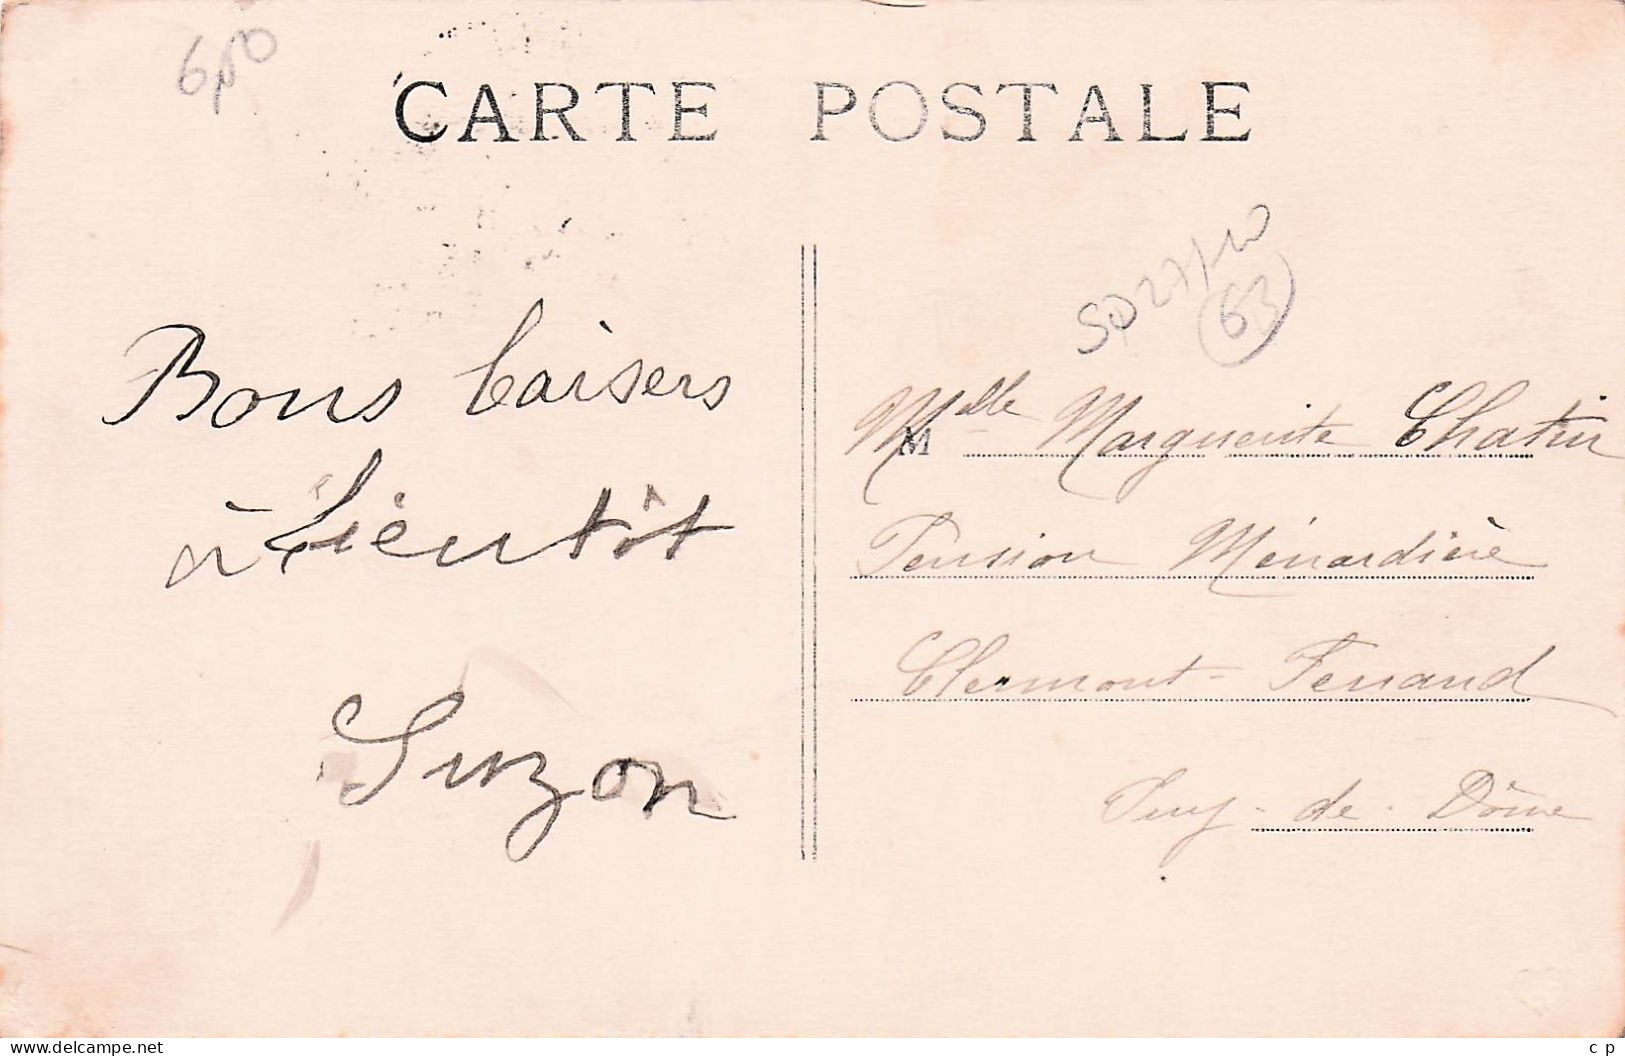 CARTE POSTALE
Bons baisers
à bientôt
Suzon
63
M
Melle Marguerite Chatin
Pension Ménardière
Clermont-Ferrand
Puy-de-Dôme
www.delcampe.net
c p